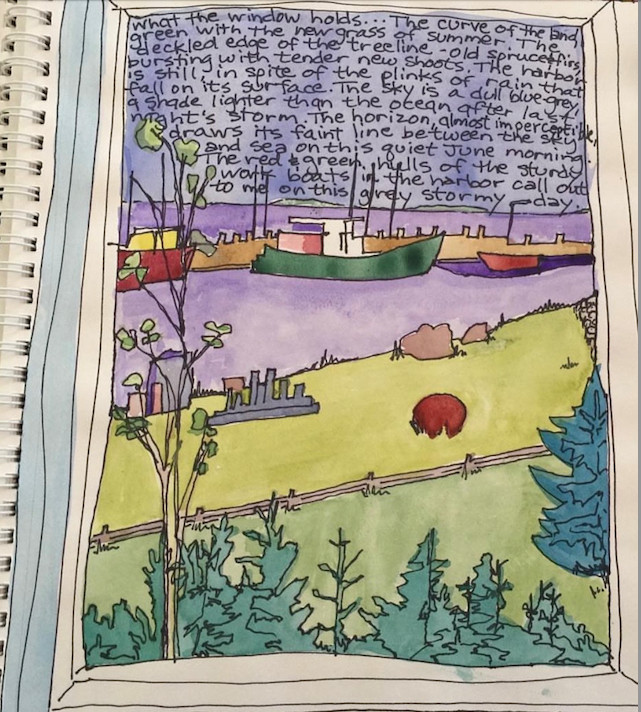 what the window holds... The curve of the land
green with the new grass of summer. The
deckled edge of the treeline - old spruce firs
bursting with tender new shoots. The harbor
is still, in spite of the plinks of rain that
fall on its surface. The sky is a dull blue-grey,
a shade lighter than the ocean after last
night's storm. The horizon, almost imperceptible,
draws its faint line between the sky
and sea on this quiet June morning
The red & green hulls of the sturdy
work boats in the harbor call out
to me on this grey stormy day.